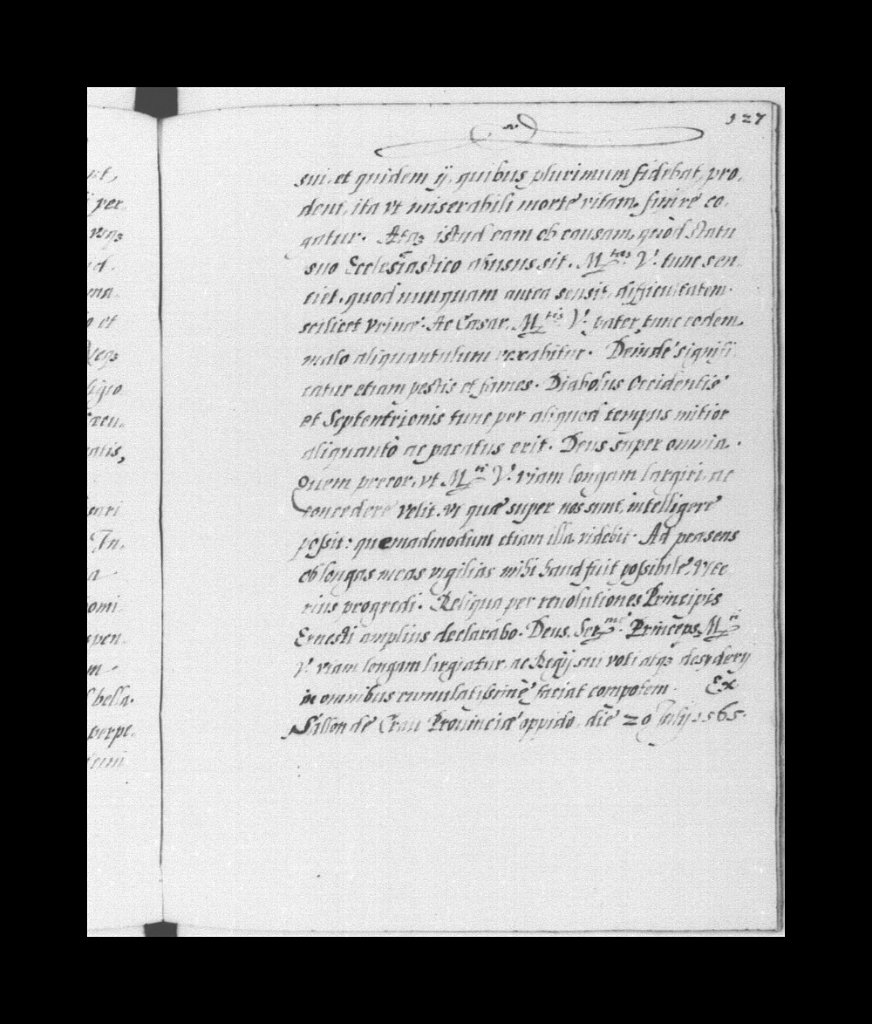 127
sui, et quidem ij, quibus plurimum fidebat, pro,
dent, ita vt miserabili morte vitam finire co,
gatur. Atqз istud eam ob causam, quod statu
suo Ecclesiastico abusus sit. M.tas V. tunc sen,
tiet, quod nunquam antea sensit, difficultatem
scilicet vrinæ. Ac Cæsar, M.tis V. pater, tunc eodem
malo aliquantulum vexabitur. Deinde signifi,
catur etiam pestis et fames. Diabolus Occidentis
et Septentrionis tunc per aliquod tempus mitior
aliquanto ac pacatus erit. Deus super omnia.
Quem precor, vt M.ti V. viam longam largiri, ac
concedere velit, vt quæ super nos sunt, intelligere
possit: quemadmodum etiam illa videbit. Ad
ob longas meas vigilias mihi haud fuit possibile vlte
rius progredi. Reliqua per reuolutiones Principis
Ernesti amplius declarabo. Deus, Ser.me Princeps, M.ti
V. viam longam largiatur, ac Regij sui voti atqз desyderij
in omnibus cumulatissime faciat compotem. Ex
Sallon de Crau Prouinciæ oppido, die 20 Julij 1565.
ct,
per
reqз
d.
ena.
o et
Reqз
ligio
facu.
ratis,
eari
In.
a
omi
spen.
m
bella.
perpe.